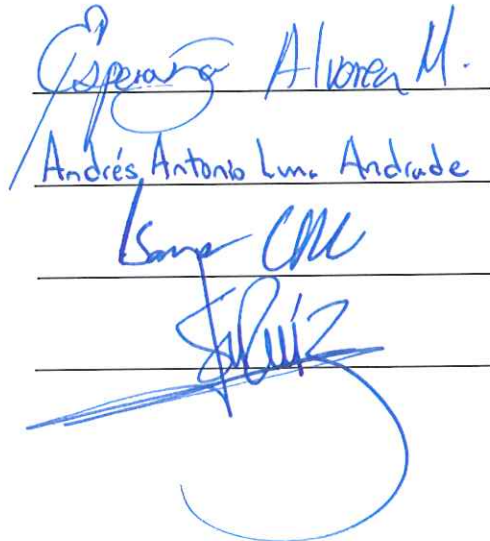 Esperanza Alvarez M.
Andrés Antonio Luna Andrade
Ruiz